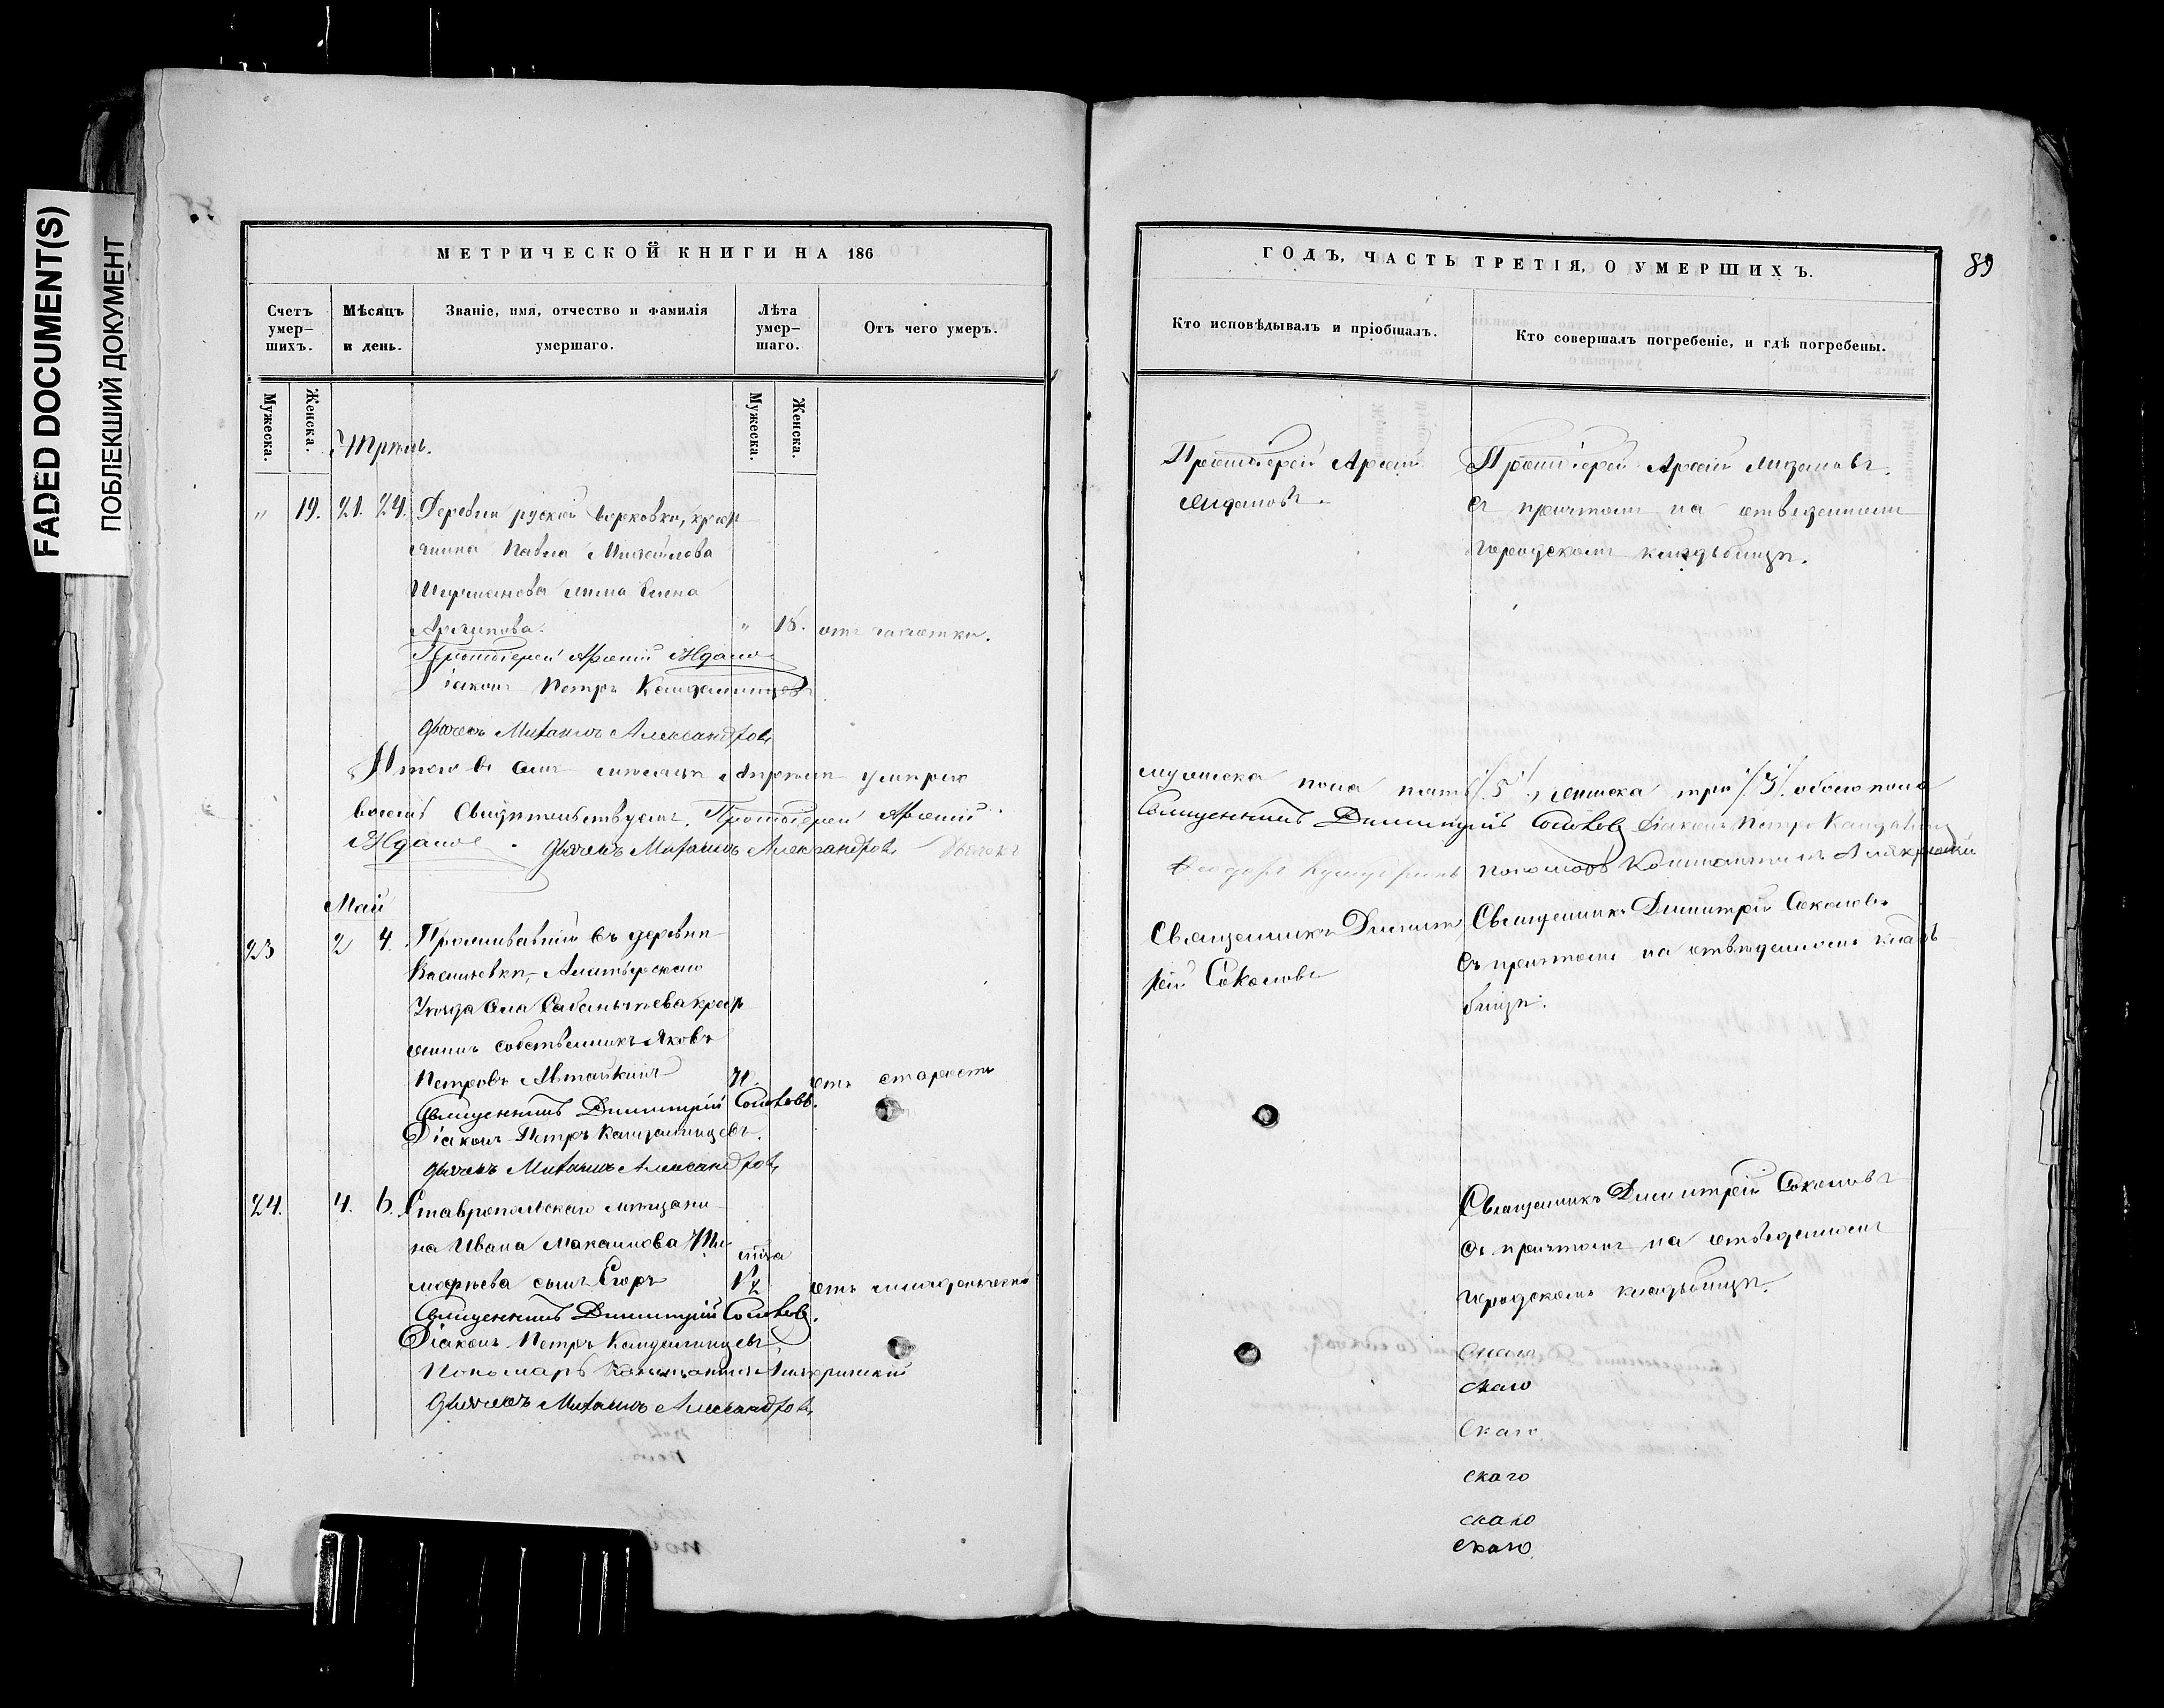 FADED DOCUMENT(S)
ПОБЛЕКШИЙ ДОКУМЕНТ
МЕТРИЧЕСКОЙ КНИГИ НА 186
Счетъ умер-шихъ.
Мѣсяцъ и день.
Званіе, имя, отчество и фамилія умершаго.
Лѣта умер-шаго.
Отъ чего умеръ.
Мужеска.
Женска.
Мужеска.
Женска.
Апрѣль.
" 19. 21. 24. Деревни руской Борковки, кресть
янина Павла Михайлова
жена Елена
Архипова. " 18. отъ чахотки.
Протоіерей Арсений Ждано
Діаконъ Петръ Кандалинцевъ
Дьячекъ Михаилъ Александровъ
Итого въ семъ мѣсяцѣ Апрѣлѣ умерло
восемь Свидѣтельствуемъ. Протоіерей Арсений
Ждано Дьячекъ Михаилъ Александровъ Дьячекъ
Май
23 2 4. Проживавшій въ деревнѣ
Васильевкѣ, Алатырскаго
Уѣзда села Сабанчеева крест
янинъ собственникъ Яковъ
Петровъ отъ старости
Священникъ Димитрій Соколовъ.
Діаконъ Петръ Кандалинцевъ.
Дьячекъ Михаилъ Александровъ
24. 4. 6. Ставропольскаго мѣщани
на Ивана Максимова Ти
мофѣева сынъ Егоръ 1/2 отъ младенческой
Священникъ Димитрій Соколовъ.
Діаконъ Петръ Кандалинцевъ.
Пономарь Константинъ
Дьячекъ Михаилъ Александровъ
ГОДЪ, ЧАСТЬ ТРЕТІЯ, О УМЕРШИХЪ.
89
Кто исповѣдывалъ и пріобщалъ.
Кто совершалъ погребеніе, и гдѣ погребены.
Протоіерей Арсений
Ждановъ.
Протоіерей Арсений Ждановъ
съ причтомъ на отведенномъ
городскомъ кладбищѣ.
мужеска пола пять /5/, женска три /3/. обоего пола
Священникъ Димитрій Соколовъ Діаконъ Петръ Кандалинц
Пономарь Константинъ
Священникъ Димит
рій Соколовъ
Священникъ Димитрій Соколовъ
съ причтомъ на отведенномъ кладъ
бищѣ.
Священникъ Димитрій Соколовъ
съ причтомъ на отведенномъ
городскомъ кладбищѣ.
скаго
скаго
скаго
скаго
скаго
скаго